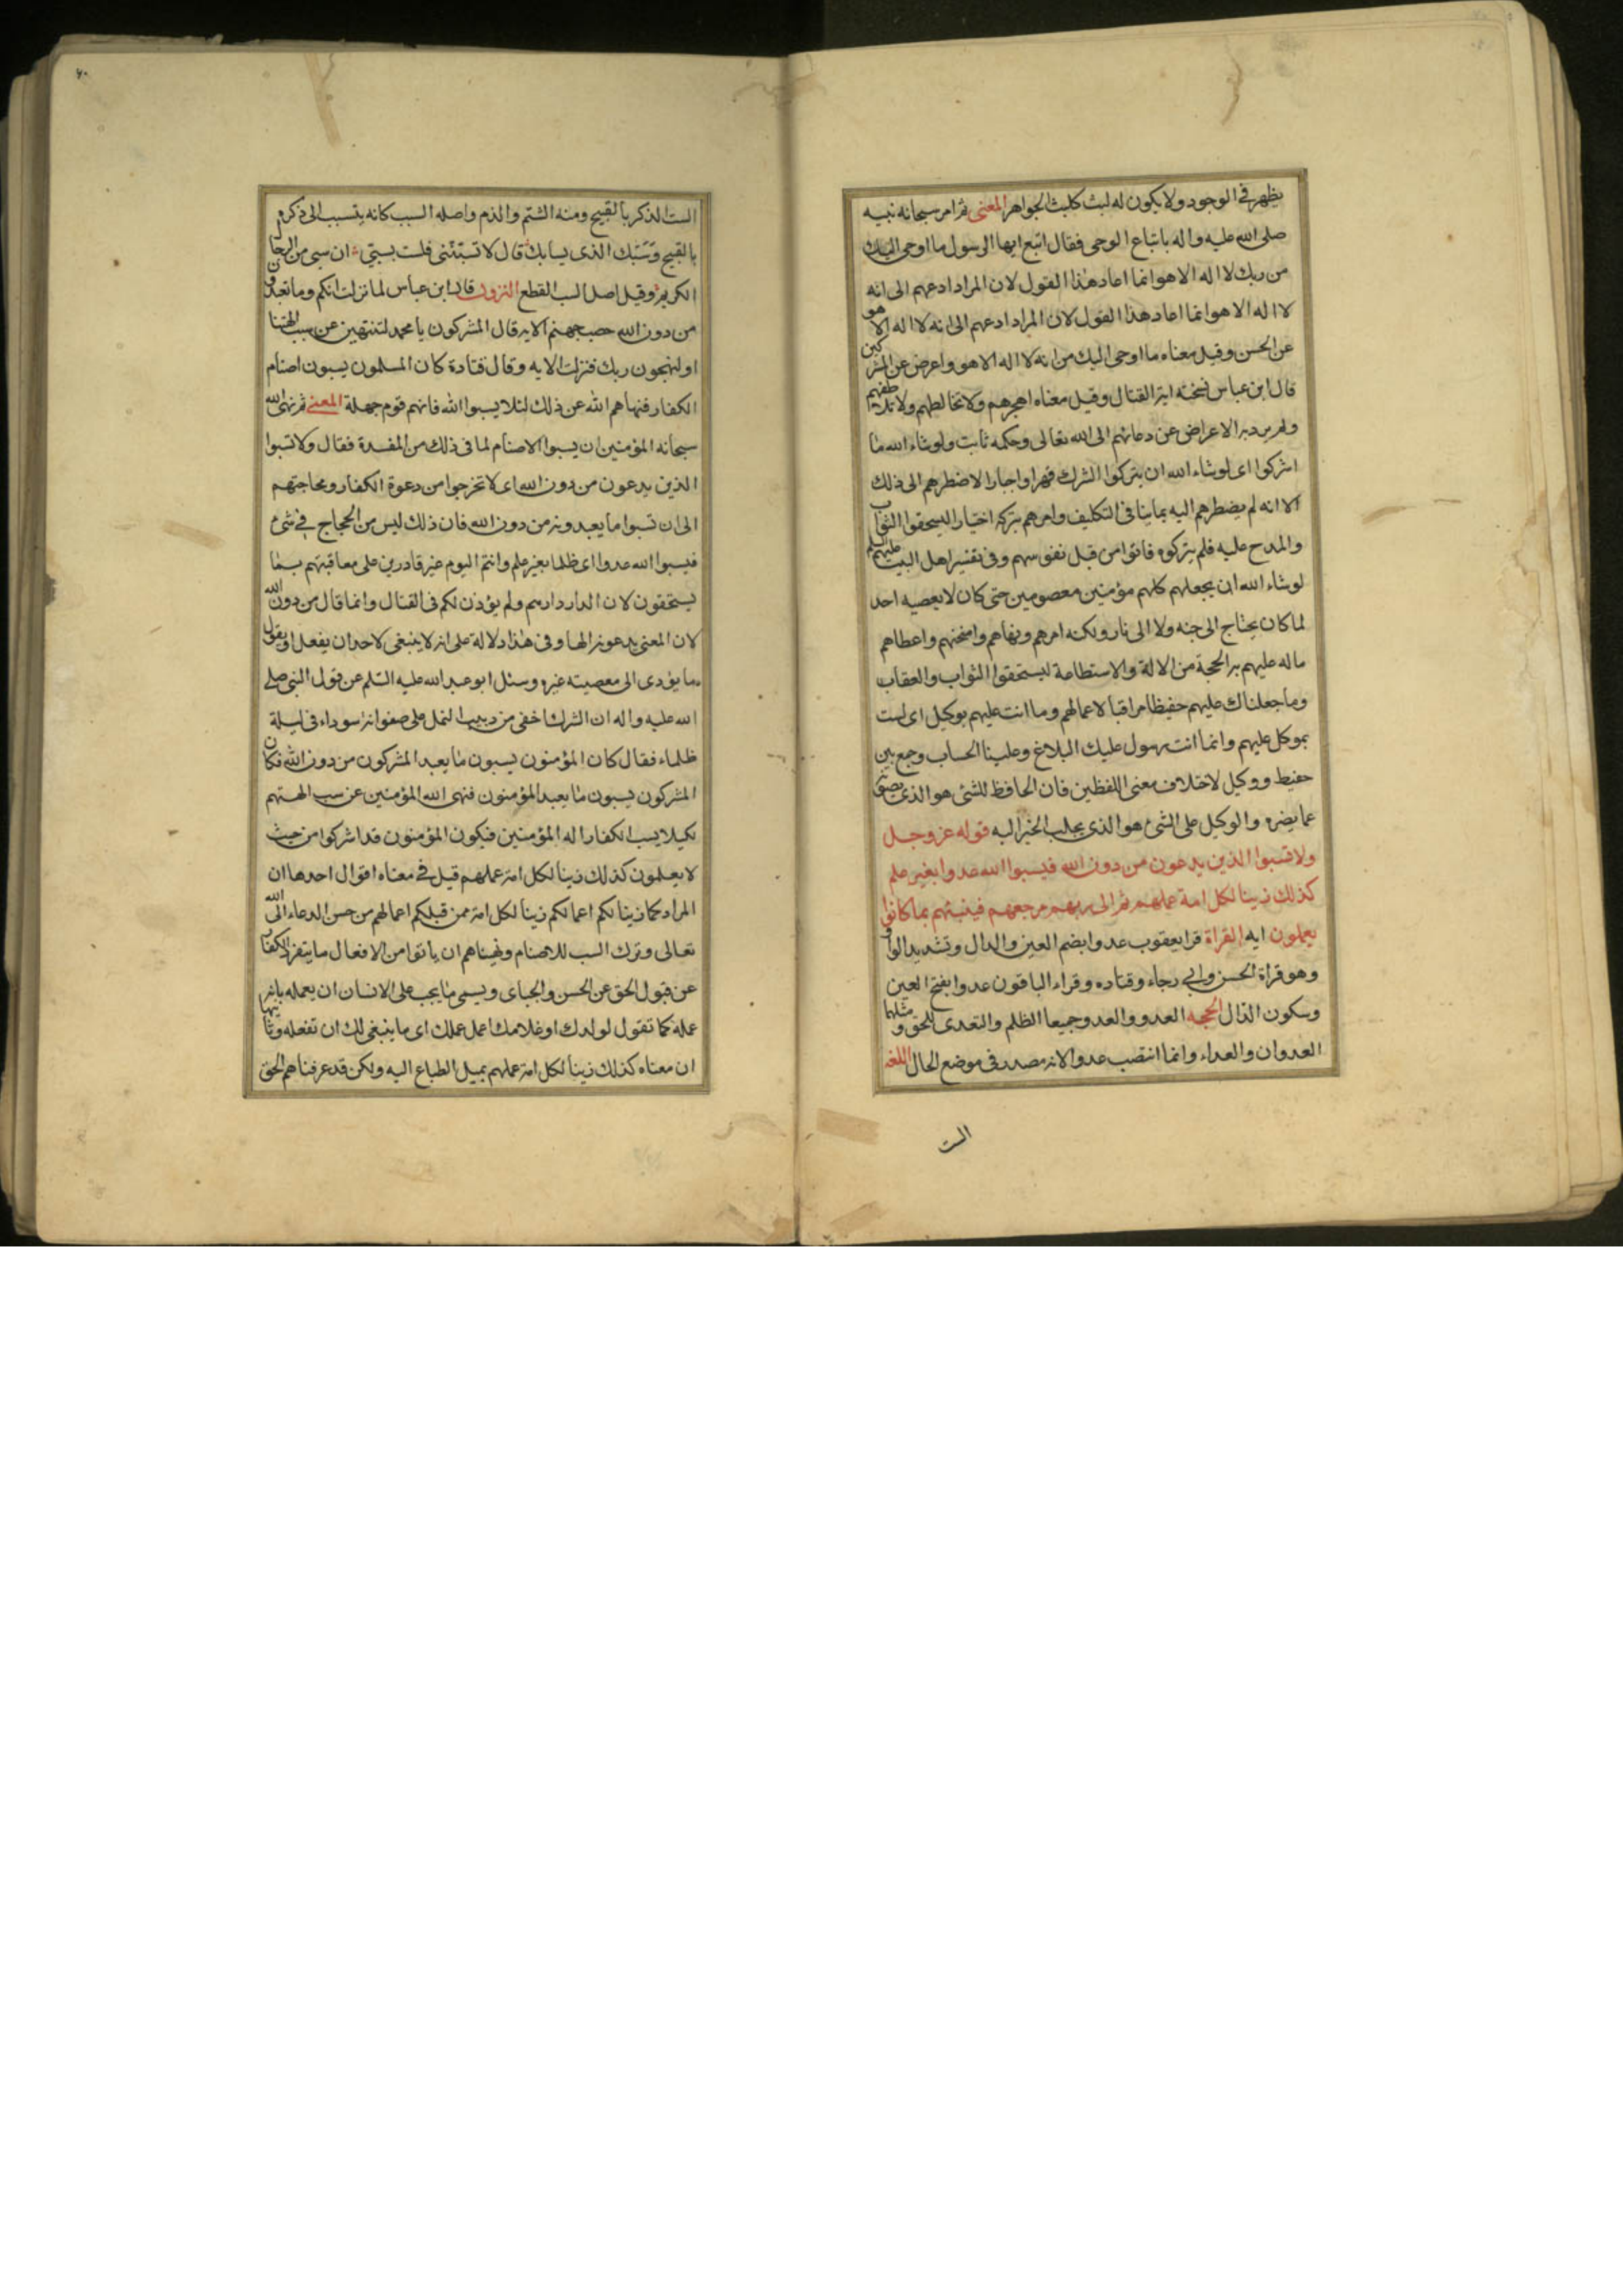 يظهر في الوجود ولا يكون له لبث كلبث الجواهر المعنى ثم امر سبحانه نبيه
صلى الله عليه واله باتباع الوحى فقال اتبع ايها الرسول ما اوحى اليك
من ربك لا اله الا هو انما اعاد هذا القول لان المراد ادعهم الى انه
لا اله الا هو انما اعاد هذا القول لان المراد ادعهم الى انه لا اله الا هو
عن الحسن وقيل معناه ما اوحى اليك من انه لا اله الا هو واعرض عن المشركين
قال ابن عباس نسخته اية القتال وقيل معناه اهجرهم ولا تخالطهم ولا تلاطفهم
ولم يرد به الاعراض عن دعائهم الى الله تعالى وحكمه ثابت ولو شاء الله ما
اشركوا اى لو شاء الله ان يتركوا الشرك قهرا واجبارا لاضطرهم الى ذلك
الا انه لم يضطرهم اليه بما ينافى التكليف وامرهم بتركه اختيارا ليستحقوا الثواب
والمدح عليه فلم يتركوه فاتوا من قبل نفوسهم وفى تفسير اهل البيت عليهم السلم
لو شاء الله ان يجعلهم كلهم مؤمنين معصومين حتى كان لا يعصيه احد
لما كان يحتاج الى جنه ولا الى نار ولكنه امرهم ونهاهم وامتحنهم واعطاهم
ما له عليهم به الحجة من الالة والاستطاعة ليستحقوا الثواب والعقاب
وما جعلناك عليهم حفيظا مراقبا لاعمالهم وما انت عليهم بوكيل اى لست
بموكل عليهم وانما انت رسول عليك البلاغ وعلينا الحساب وجمع بين
حفيظ ووكيل لاختلاف معنى اللفظين فان الحافظ للشئ هو الذى يصونه
عما يضره والوكيل على الشئ هو الذى يجلب الخير اليه قوله عز وجل
ولا تسبوا الذين يدعون من دون الله فيسبوا الله عدوا بغير علم
كذلك زينا لكل امة عملهم ثم الى ربهم مرجعهم فينبئهم بما كانوا
يعملون ايه القراة قرا يعقوب عدوا بضم العين والدال وتشديد الواو
وهو قراة الحسن وابي رجاء وقتاده وقراء الباقون عدوا بفتح العين
وسكون الدال الحجه العدو والعدو جميعا الظلم والتعدى للحق ومثلهما
العدوان والعداء وانما انتصب عدوا لانه مصدر في موضع الحال اللغه
الست
٦٠
الست الذكر بالقبيح ومنه الشتم والذم واصله السبب كانه يتسبب الى ذكره
بالقبيح وسبك الذى يسابك قال لا تسبننى فلست بسبى ان سبى من الرجال
الكريم وقيل اصل السب القطع النزول قال ابن عباس لما نزلت انكم وما تعبدون
من دون الله حصب جهنم الايه قال المشركون يا محمد لتنتهين عن سب الهتنا
او لنهجون ربك فنزلت الايه وقال قتادة كان المسلمون يسبون اصنام
الكفار فنهاهم الله عن ذلك لئلا يسبوا الله فانهم قوم جهلة المعنى ثم نهى الله
سبحانه المؤمنين ان يسبوا الاصنام لما فى ذلك من المفسدة فقال ولا تسبوا
الذين يدعون من دون الله اى لا تخرجوا من دعوة الكفار ومحاجتهم
الى ان تسبوا ما يعبدونه من دون الله فان ذلك ليس من الحجاج في شئ
فيسبوا الله عدوا اى ظلما بغير علم وانتم اليوم غير قادرين على معاقبتهم بما
يستحقون لان الدار دارهم ولم يؤذن لكم فى القتال وانما قال من دون الله
لان المعنى يدعونه الها وفى هذا دلالة على انه لا ينبغى لاحد ان يفعل او يقول
ما يؤدى الى معصيته غيره وسئل ابو عبد الله عليه السلم عن قول النبى صلى
الله عليه واله ان الشرك اخفى من دبيب النمل على صفوانه سوداء فى ليلة
ظلماء فقال كان المؤمنون يسبون ما يعبد المشركون من دون الله فكان
المشركون يسبون ما يعبد المؤمنون فنهى الله المؤمنين عن سب الهتهم
لكيلا يسب الكفار اله المؤمنين فيكون المؤمنون قد اشركوا من حيث
لا يعلمون كذلك زينا لكل امة عملهم قيل في معناه اقوال احدها ان
المراد كما زينا لكم اعمالكم زينا لكل امة ممن قبلكم اعمالهم من حسن الدعاء الى الله
تعالى وترك السب للاصنام ونهيناهم ان ياتوا من الافعال ما ينفر الكفار
عن قبول الحق عن الحسن والجباى ويسمى ما يجب على الانسان ان يعمله بانه
عمله كما تقول لولدك او غلامك اعمل عملك اى ما ينبغى لك ان تفعله وثانيها
ان معناه كذلك زينا لكل امة عملهم بميل الطباع اليه ولكن قد عرفناهم الحق